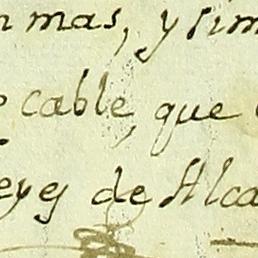 n mas, y sim
cable, que
eyes de Alca